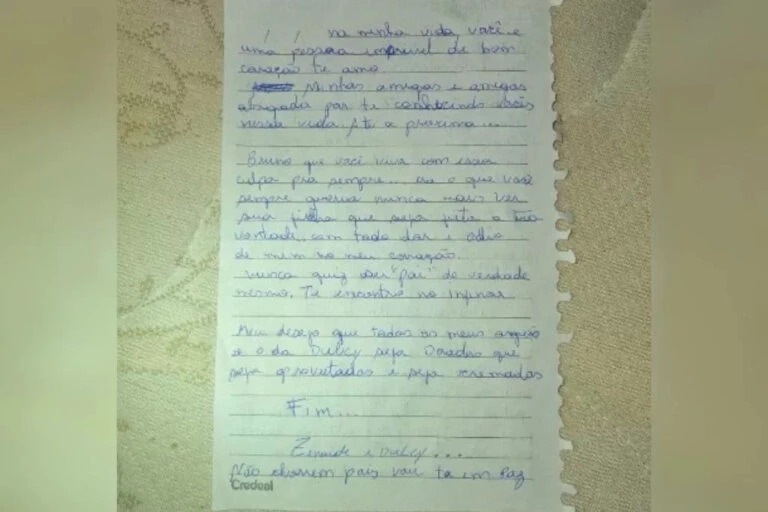 na minha vida, você e
uma pessoa incrivel de bom
coração te amo.
Minhas amigas e amigos
obrigada por te conhecendo vocês
nessa vida, Ate a proxima...
Bruno que você viva com essa
culpa pra sempre... era o que você
sempre queria nunca mais ver
sua filha que seja feita a tua
vontade, com toda dor e odio
de mim no meu coração.
nunca quiz ser "pai" de verdade
mesmo. Te encontro no inferno
Meu desejo que todos os meus orgãos
e o da Dulcy seja Doados que
seja aproveitados e seja cremadas
Fim...
e Dulcy...
Não chorem pais vou ta em Paz
Credeal